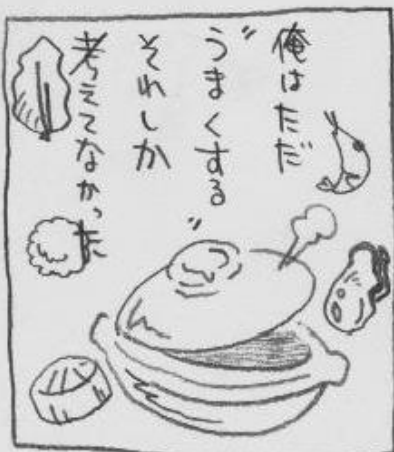 俺はただ
"うまくする"
それしか
考えてなかった